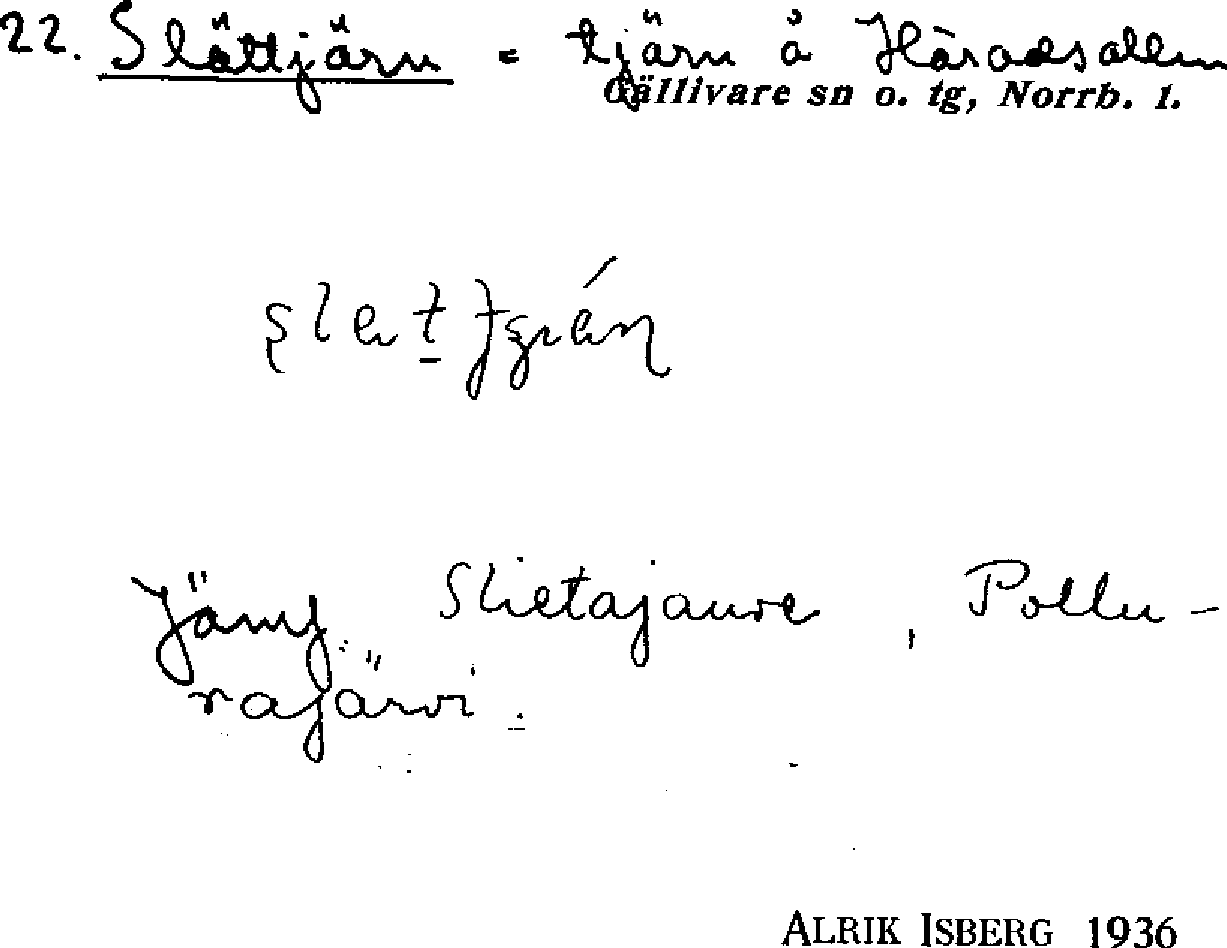 22. Slättjärn = tjärn å Häradsallm
Gällivare sn o. tg, Norrb. l.
Jämf. Slietajaure, Pollu-
rajärvi.
ALRIK ISBERG 1936